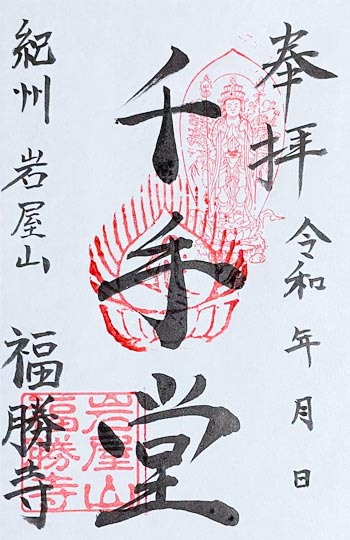 奉拝
令和 年 月 日
千手堂
紀州 岩屋山
福勝寺
岩屋山
福勝寺